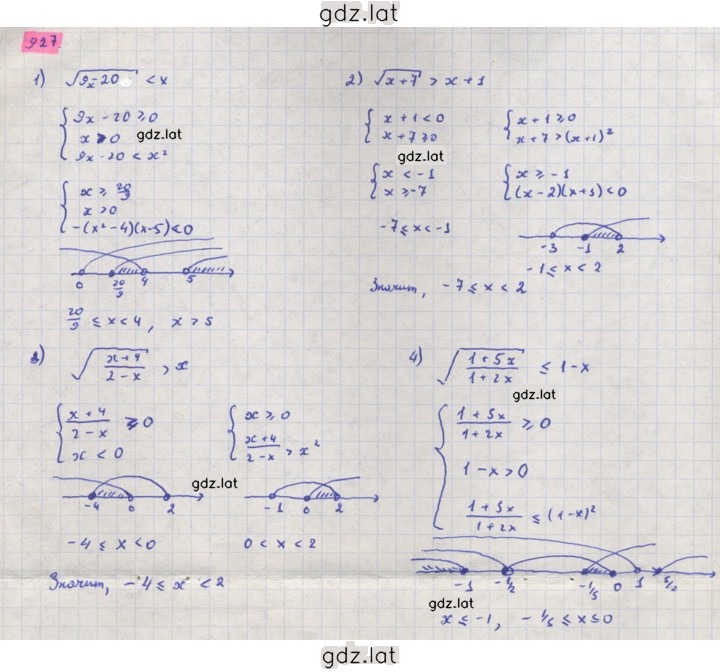 gdz.lat
927.
1) √(9x-20) < x
{ 9x - 20 ≥ 0
x > 0
9x - 20 < x²
gdz.lat
{ x ≥ 20/9
x > 0
-(x² - 4)(x - 5) < 0
0 20/9 4 5
20/9 ≤ x < 4, x > 5
2) √(x+7) > x + 1
{ x + 1 < 0
x + 7 ≥ 0
{ x + 1 ≥ 0
x + 7 > (x+1)²
gdz.lat
{ x < -1
x ≥ -7
{ x ≥ -1
(x-2)(x+3) < 0
-7 ≤ x < -1
-3 -1 2
-1 ≤ x < 2
Значит, -7 ≤ x < 2
3) √((x+4)/(2-x)) > x
{ (x+4)/(2-x) ≥ 0
x < 0
{ x ≥ 0
(x+4)/(2-x) > x²
gdz.lat
-4 0 2
-1 0 2
-4 ≤ x < 0
0 < x < 2
Значит, -4 ≤ x < 2
4) √((1+5x)/(1+2x)) ≤ 1 - x
gdz.lat
{ (1+5x)/(1+2x) ≥ 0
1 - x > 0
(1+5x)/(1+2x) ≤ (1-x)²
-1 -1/2 -1/5 0 1 5/2
gdz.lat
x ≤ -1, -1/5 ≤ x ≤ 0
gdz.lat